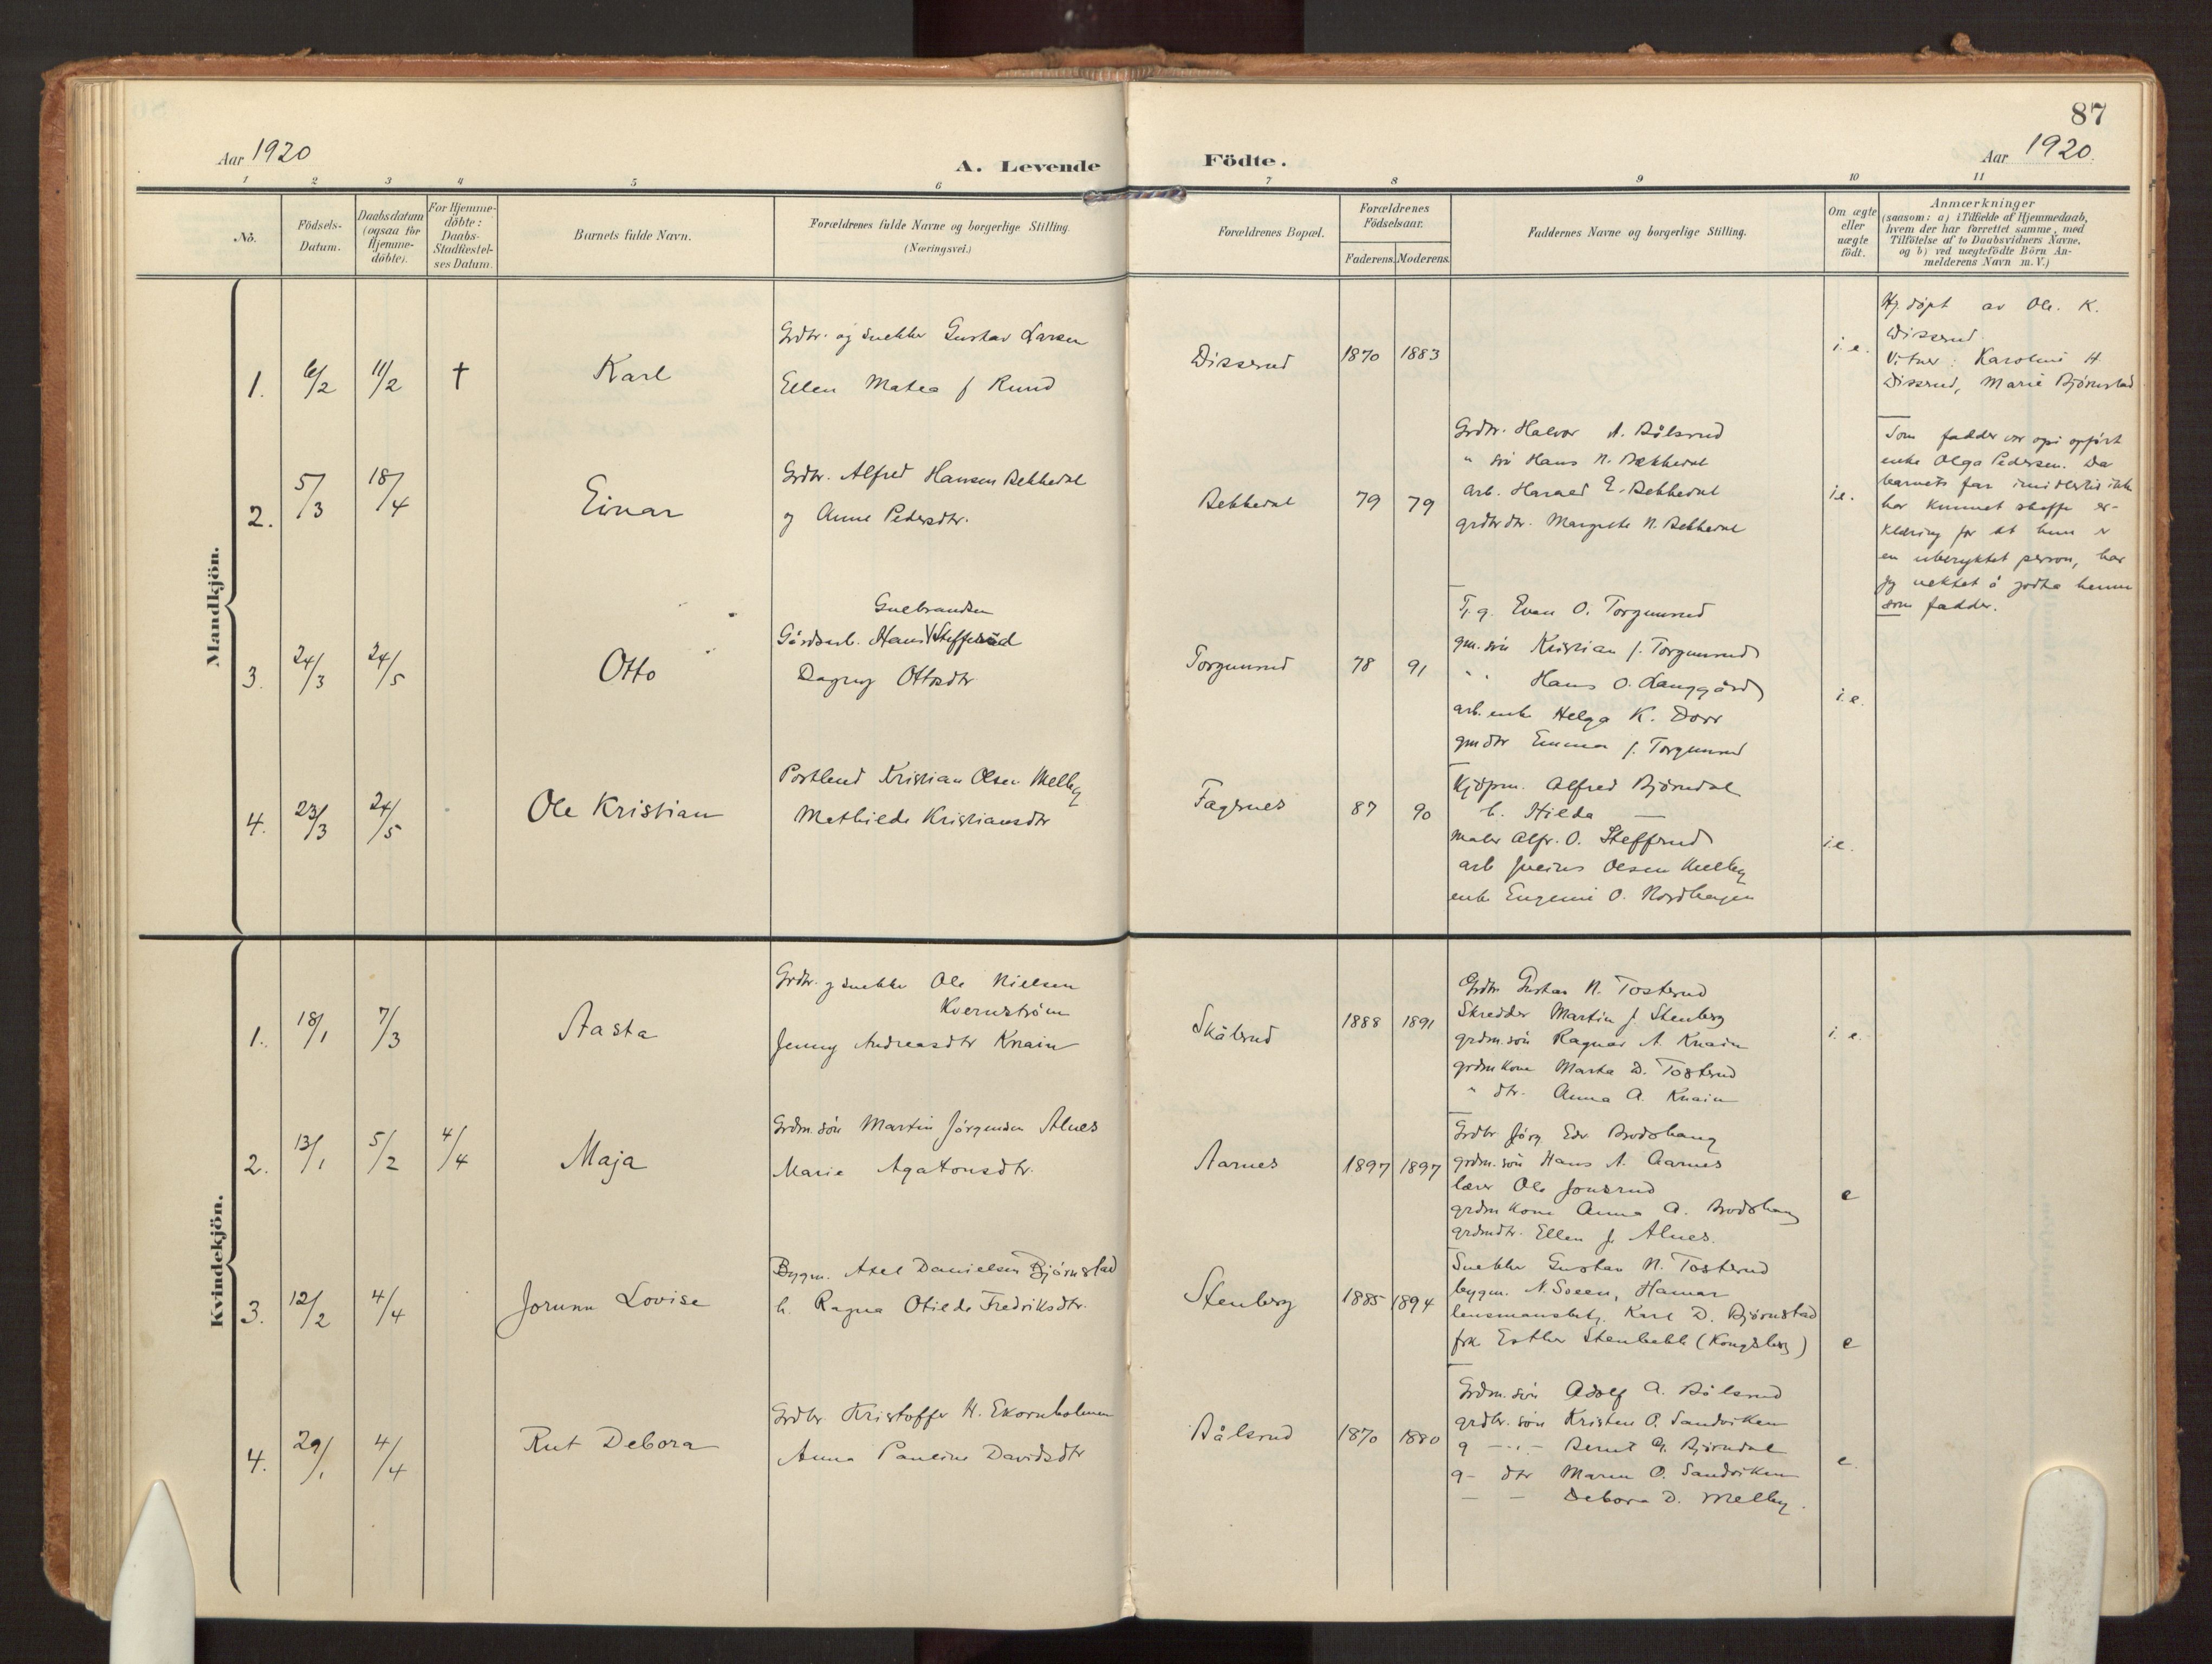 87
Aar 1920
A. Levende Födte.
Aar 1920.
1 2 3 4 5 6 7 8 9 10 11
No.
Födsels-Datum.
Daabsdatum (ogsaa for Hjemme-döbte).
For Hjemme-döbte: Daabs-Stadfæstel-ses Datum.
Barnets fulde Navn.
Forældrenes fulde Navne og borgerlige Stilling.
(Næringsvei.)
Forældrenes Bopæl.
Forældrenes Födselsaar.
Faderens. Moderens.
Faddernes Navne og borgerlige Stilling.
Om ægte eller uægte födt.
Anmærkninger
(saasom: a) i Tilfælde af Hjemmedaab,
hvem der har forrettet samme, med
Tilföielse af to Daabsvidners Navne,
og b) ved uægtefödte Börn An-
melderens Navn m. V.)
Mandkjön.
1. 6/2 11/2 † Karl
Grdbr. og snekker Gustav Larsen
Ellen Matea f Rund
Disserud 1870 1883
i. e.
Hj. døpt av Ole K.
Disserud.
Vitner: Karoline H.
Disserud, Marie Bjørnstad
2. 5/3 18/4 Einar
Grdbr. Alfred Hansen Bekkedal
og Anne Pedersdtr.
Bekkedal 79 79
Grdbr. Halvor A. Bålsrud
" søn Hans N. Bekkedal
arb. Harald E. Bekkedal
grdbr dtr. Margrete N. Bekkedal
i.e.
Som fadder var ogs opført
enke Olga Pedersen. Da
barnets far imidlertid ikke
har kunnet skaffe er-
klæring for at hun er
en uberyktet person, har
jeg nektet å godta henne
som fadder.
3. 24/3 24/5 Otto
Gulbrandsen
Gårdsarb. Hans Steffensrud
Dagny Ottosdtr
Torgunrud 78 91
G. g. Even O. Torgunrud
gm. søn Kristian J. Torgunrud
" " Hans O. Langgård
arb. enke Helga K. Dorr
gm dtr Emma J. Torgunrud
i. e.
4. 23/3 24/5 Ole Kristian
Postbud Kristian Olsen Melby
Mathilde Kristiansdtr
Fagernes 87 90
Kjøpm. Alfred Bjørndal
h. Hilda —
maler Alfr. O. Steffrud
arb Julius Olsen Melby
enke Eugenie O. Nordhagen
i.e.
Kvindekjön.
1. 18/1 7/3 Aasta
Grdbr. og snekker Ole Nielsen
Kvernstrøm
Jenny Andreasdtr Knain
Skålsrud 1888 1891
Grdbr Gustav N. Tosterud
Skredder Martin J. Stenberg
grdm. søn Ragnar A. Knain
grdm kone Marta D. Tosterud
" dtr. Anna A. Knain
i. e.
2. 13/1 5/2 4/4 Maja
Grdm. søn Martin Jörgensen Alnes
Marie Agatonsdtr.
Aarnes 1897 1897
Grdbr Jörg. Edv. Brodshaug
grdm. søn Hans A. Aarnes
lærer Ole Jonsrud
grdm kone Anna A. Brodshaug
grdmdtr. Ellen J. Alnes.
e
3. 12/2 4/4 Jorunn Lovise
Bygm. Axel Danielsen Bjørnstad
h. Ragna Otilde Fredriksdtr.
Stenberg 1885 1894
Snekker Gustav N. Tosterud
bygm. N. Soeen, Hamar
lensmansbetj. Karl D. Bjørnstad
frk. Esther Stenbekk (Kongsberg)
e
4. 29/1 4/4 Rut Debora
Grdbr. Kristoffer H. Ekornholmen
Anna Pauline Davidsdtr
Bålsrud 1870 1880
Grdm. søn Adolf A. Bålsrud
grdbr. søn Kristen O. Sandviken
g —"— Bernt G. Bjørndal
g- dtr Maren O. Sandviken
— — Debora D. Melby.
e.